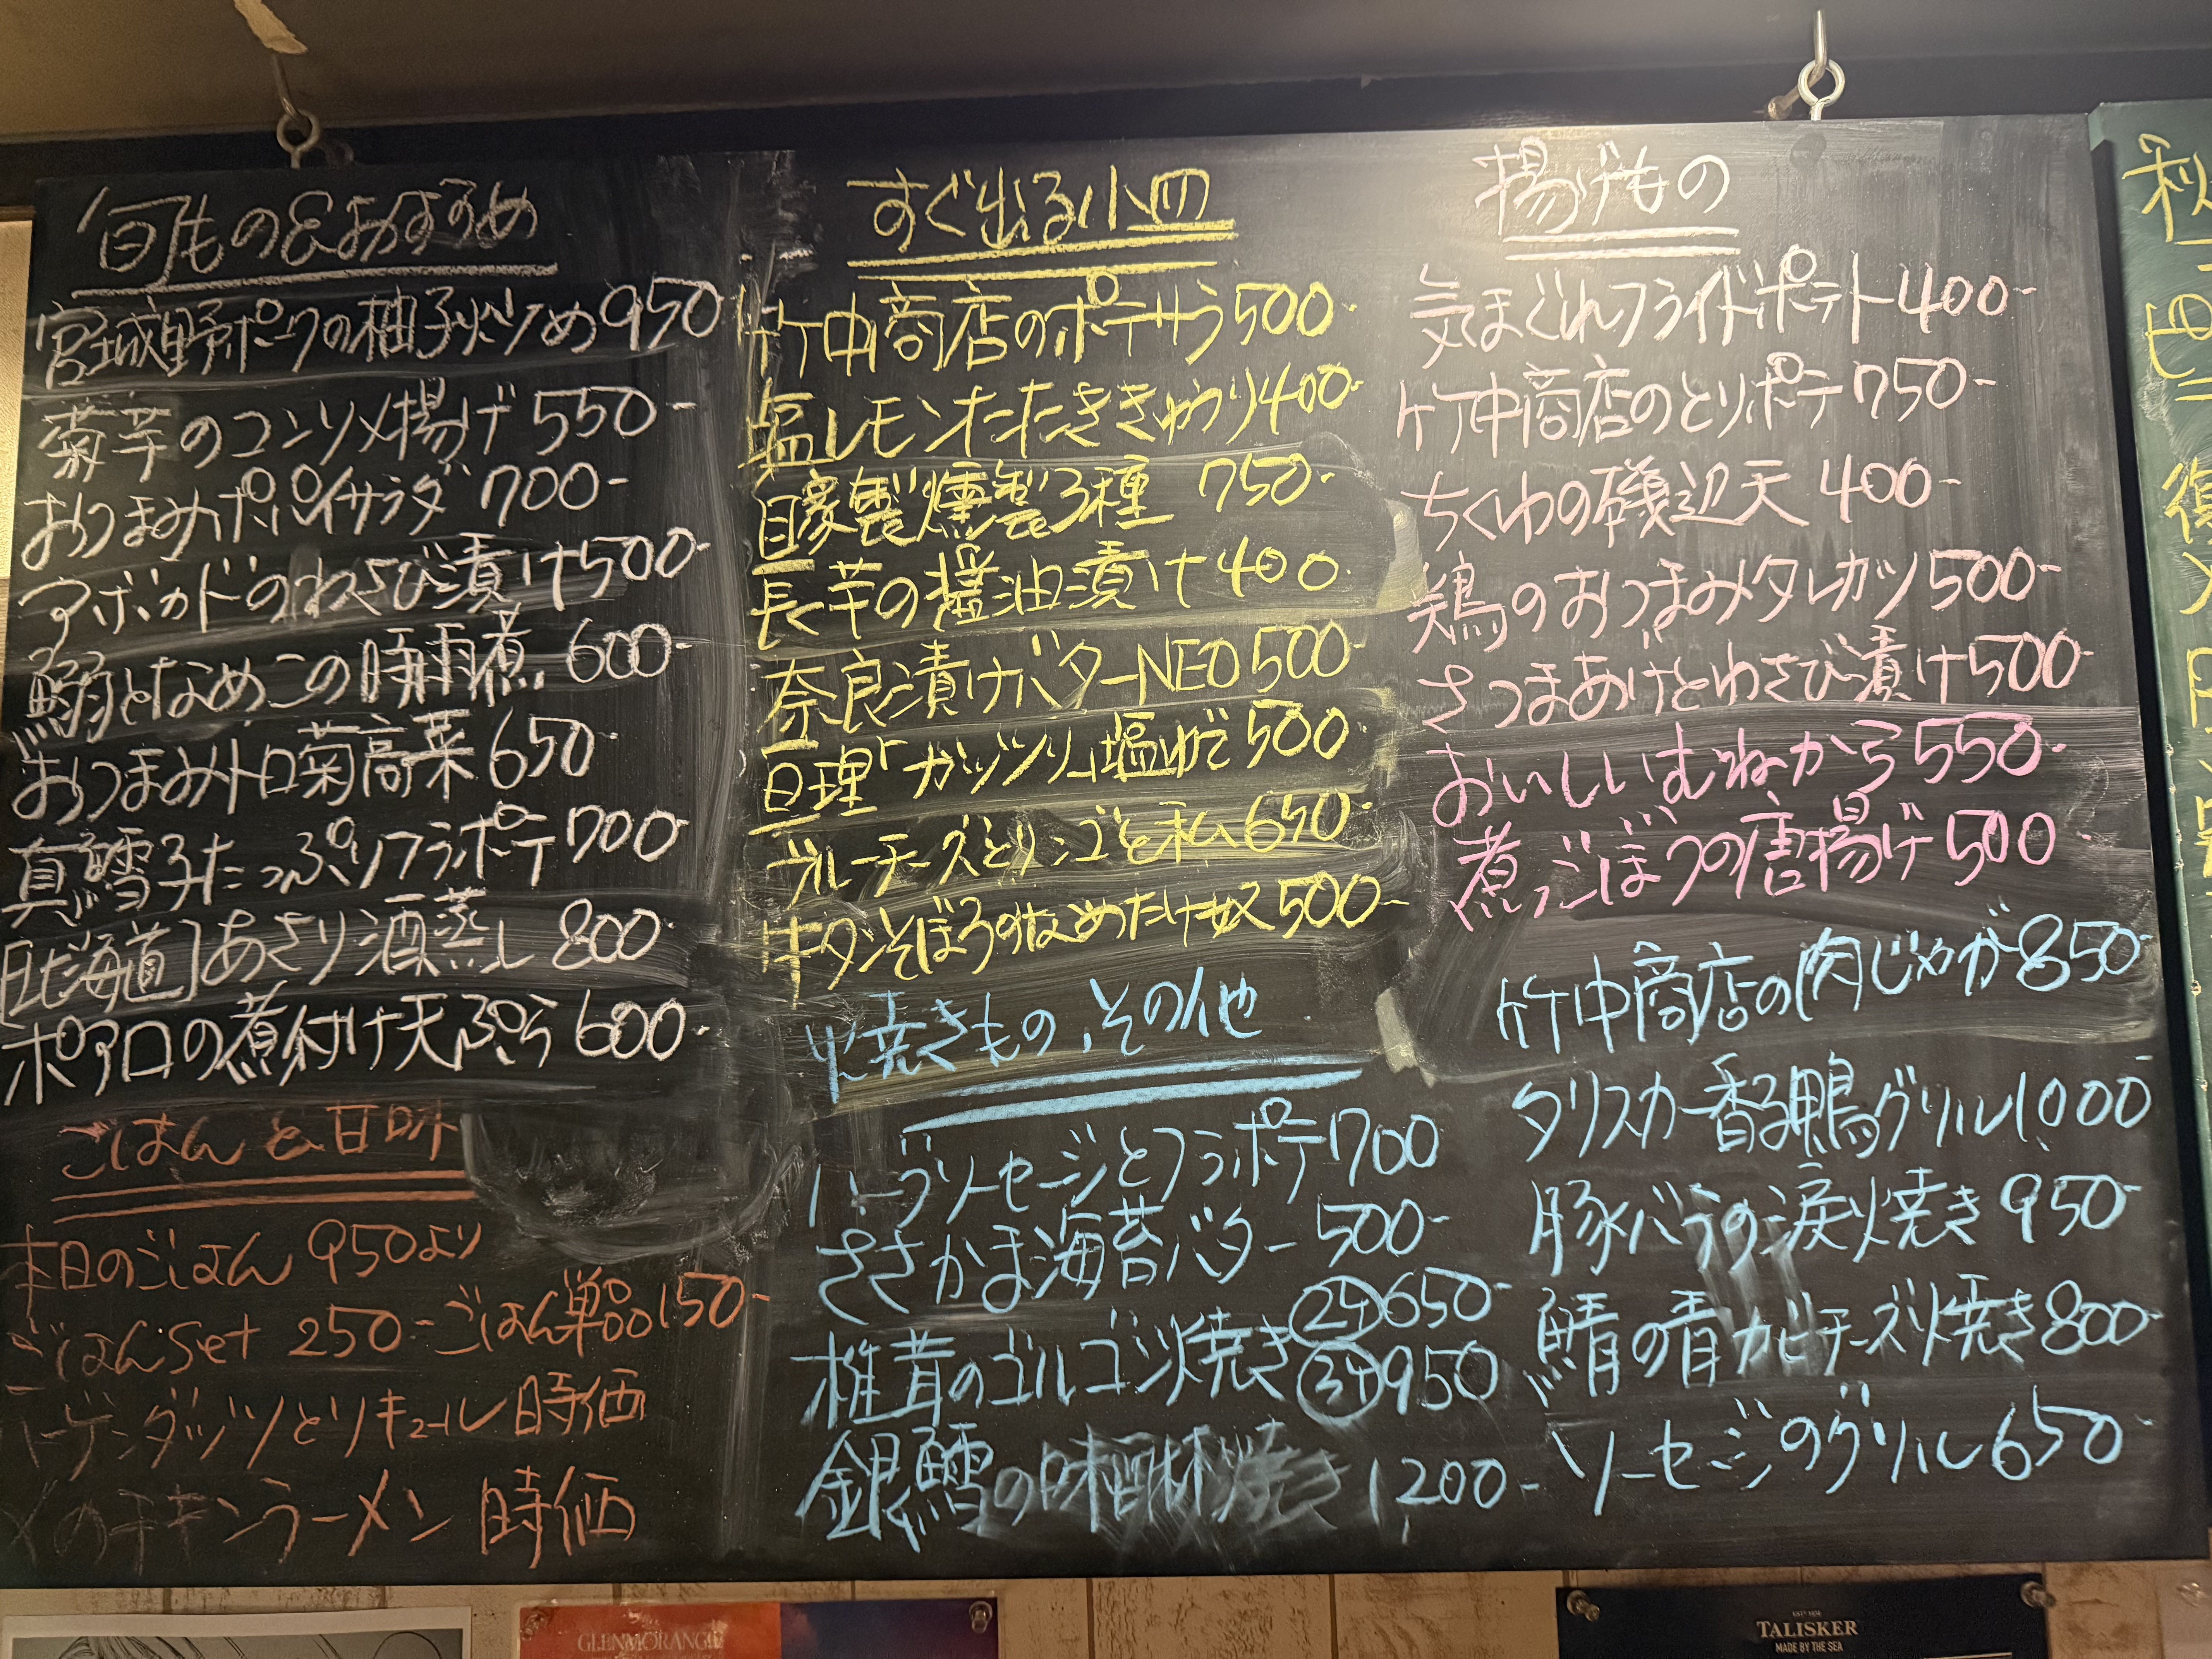 旬もの&おすすめ
宮城野ポークの柚子炒め950-
菊芋のコンソメ揚げ 550-
おつまみポパイサラダ 700-
アボカドのわさび漬け500-
鰯となめこの時雨煮 600-
おつまみトロ菊高菜 650
真鱈子たっぷりフラポテ700-
[北海道]あさり酒蒸し 800-
ポアロの煮付け天ぷら 600-
ごはんと甘味
本日のごはん 950より
ごはんset 250- ごはん単品150-
ハーゲンダッツとリキュール 時価
〆のチキンラーメン 時価
すぐ出る小皿
竹中商店のポテサラ500-
塩レモンたたききゅうり400-
自家製燻製3種 750-
長芋の醤油漬け400-
奈良漬けバターNEO500-
亘理「ガッツンリ」塩ゆで500-
ブルーチーズとリンゴと私650-
牛タンそぼろのなめたけ奴500-
焼きもの、その他
ハーブソーセージとフラポテ700
ささかま海苔バター 500-
椎茸のゴルゴン焼き 650-
950
銀鱈の味醂焼き 1200-
揚げもの
気まぐれフライドポテト400-
竹中商店のとりポテ750-
ちくわの磯辺天 400-
鶏のおつまみタレカツ500-
さつまあげとわさび漬け500-
おいしいむねから550-
煮ごぼうの唐揚げ500-
竹中商店の肉じゃが850-
タリスカー香る鴨グリル1000
豚バラの涙焼き 950-
鯖の青カビチーズ焼き800-
ソーセージのグリル650-
秋
GLENMORANGIE
ESTD 1830
TALISKER
MADE BY THE SEA